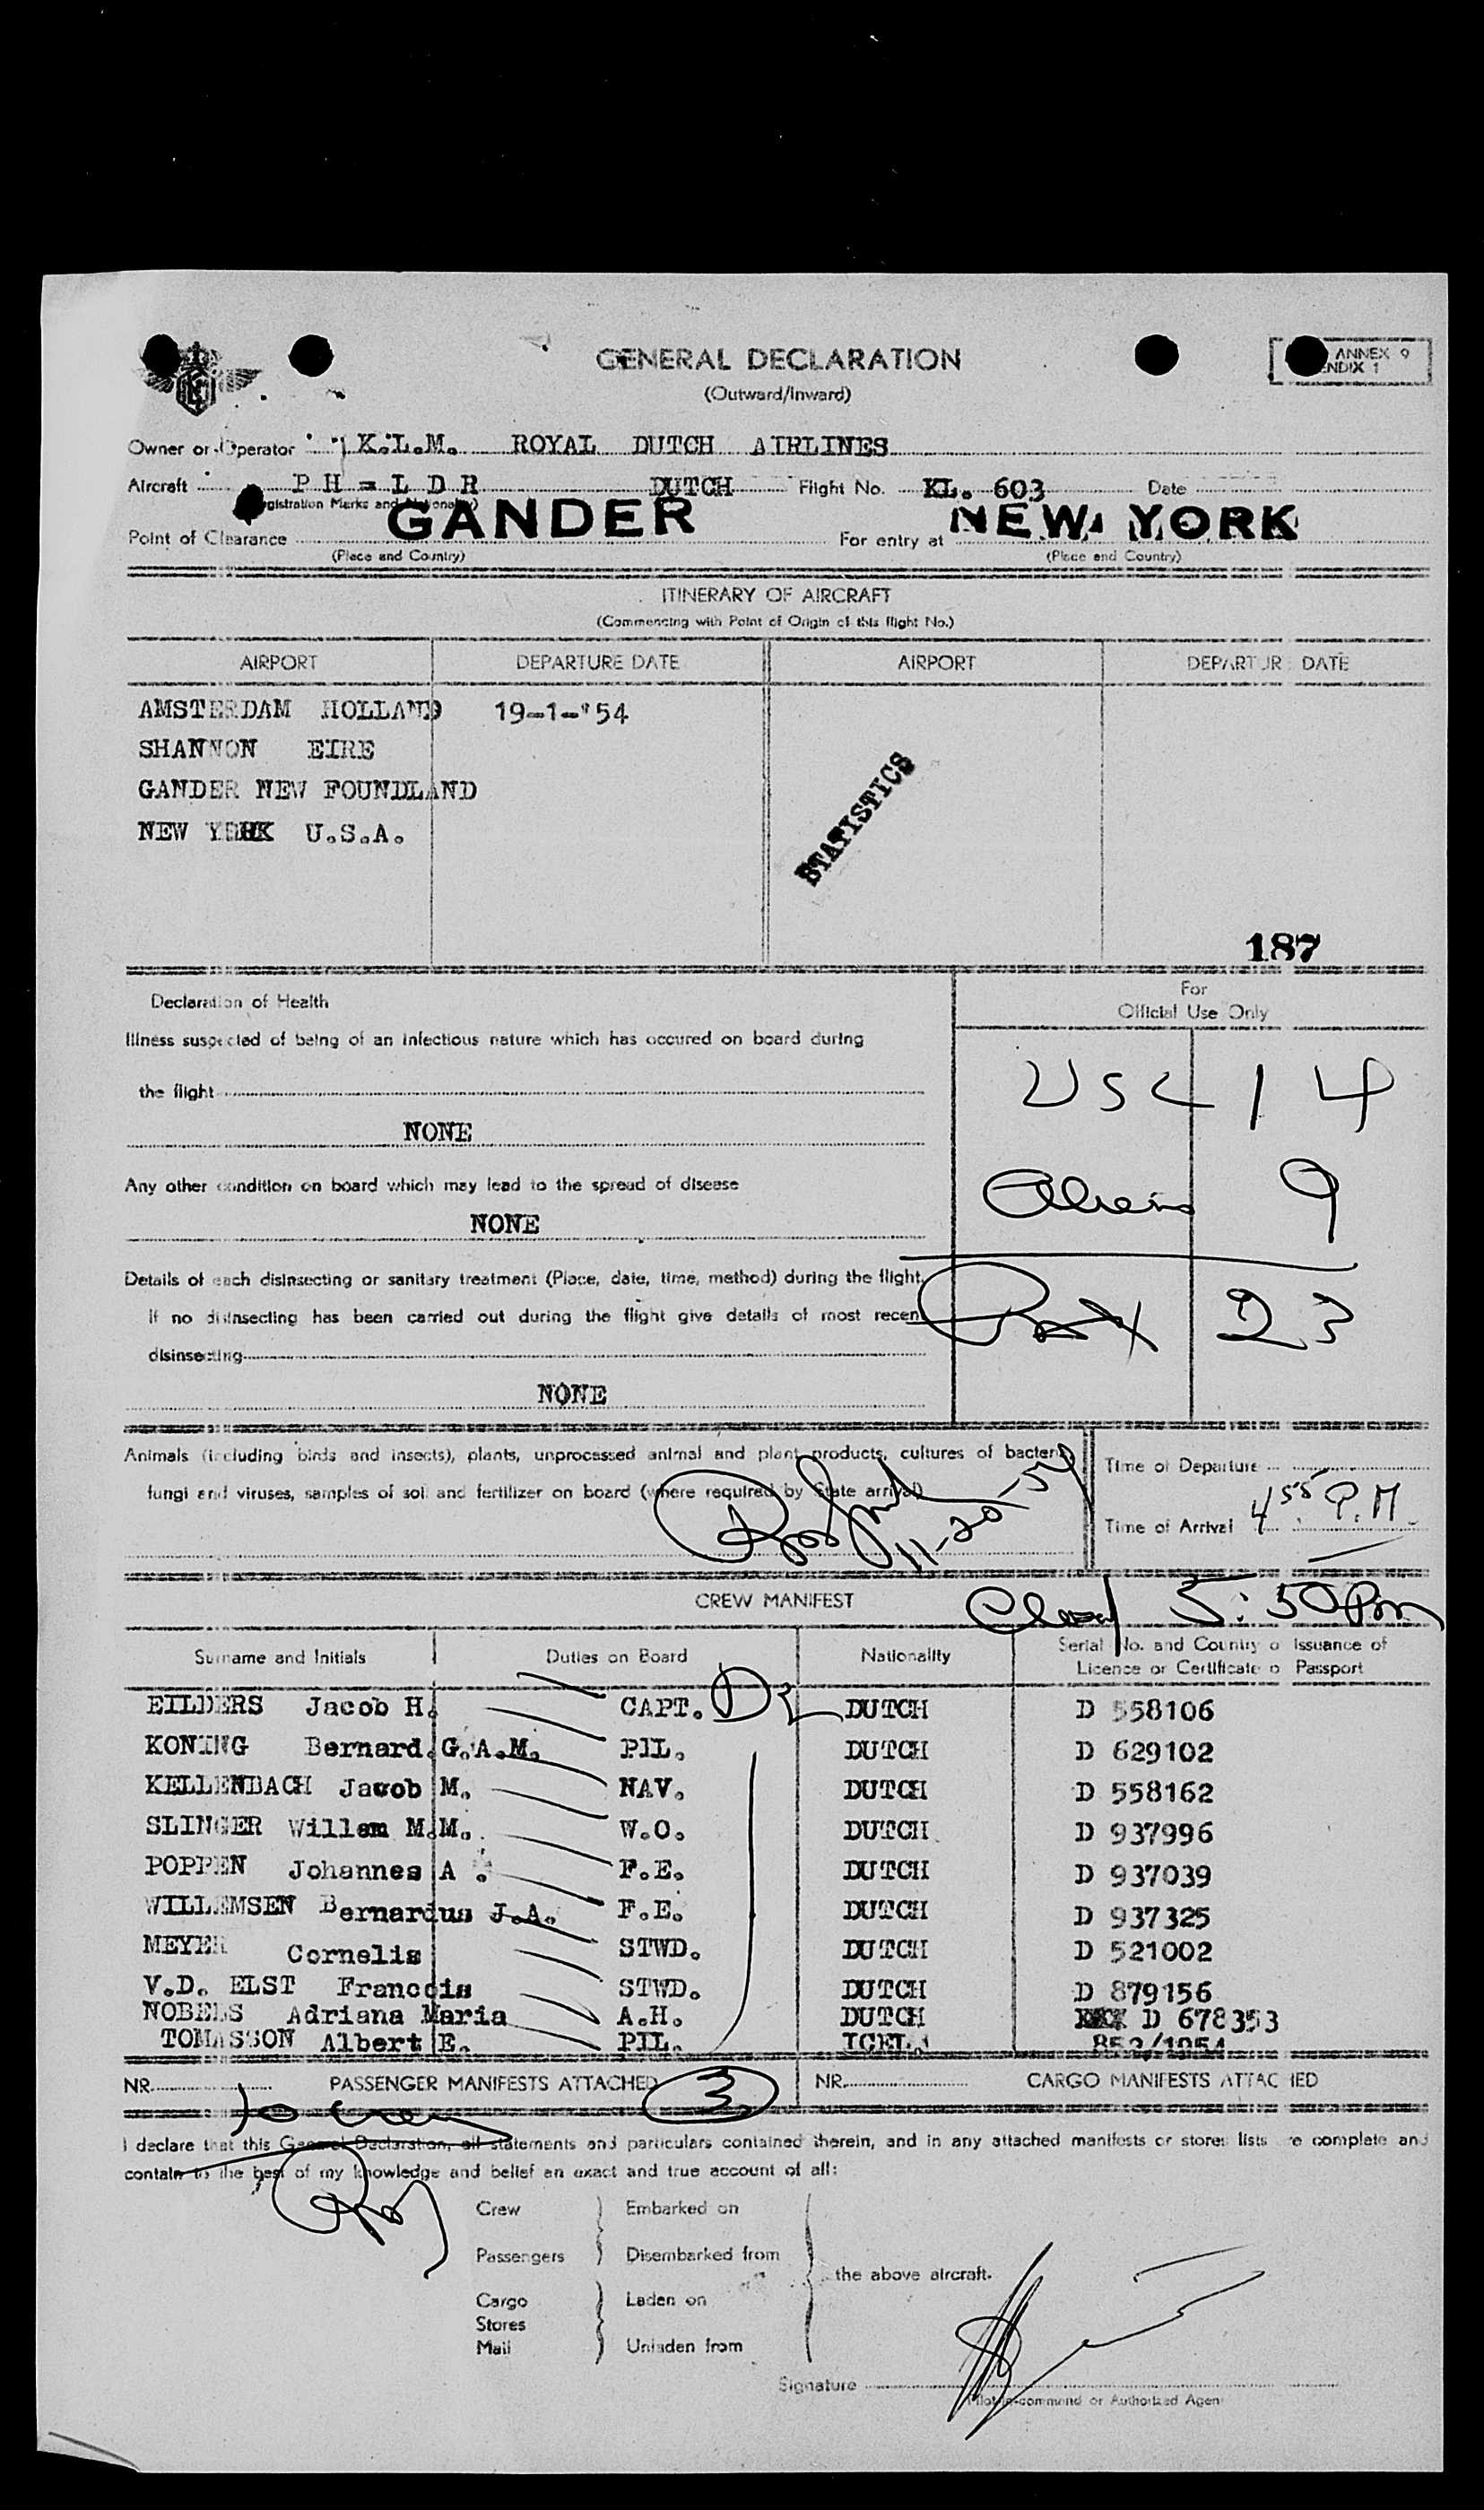 GENERAL DECLARATION
(Outward/Inward)
ANNEX 9
ENDIX 1
Owner or Operator K.L.M. ROYAL DUTCH AIRLINES
Aircraft PH = L D R DUTCH Flight No. KL. 603 Date
GANDER NEW YORK
Point of Clearance For entry at
(Place and Country) (Place and Country)
ITINERARY OF AIRCRAFT
(Commencing with Point of Origin of this flight No.)
AIRPORT DEPARTURE DATE AIRPORT DEPARTUR DATE
AMSTERDAM HOLLAND 19-1-'54
SHANNON EIRE
GANDER NEW FOUNDLAND
NEW YORK U.S.A.
STATISTICS
187
Declaration of Health
For
Official Use Only
Illness suspected of being of an infectious nature which has occured on board during
the flight
NONE
USC 14
Any other condition on board which may lead to the spread of disease
NONE
Aliens 9
Details of each disinsecting or sanitary treatment (Place, date, time, method) during the flight.
If no disinsecting has been carried out during the flight give details of most recen
disinsecting
NONE
23
Animals (including birds and insects), plants, unprocessed animal and plant products, cultures of bacteria,
fungi and viruses, samples of soil and fertilizer on board (where required by State arrival)
Time of Departure
Time of Arrival 4 55 P.M.
CREW MANIFEST
5:50 Pm
Surname and Initials Duties on Board Nationality Serial No. and Country o Issuance of
Licence or Certificate o Passport
EILDERS Jacob H. CAPT. DUTCH D 558106
KONING Bernard.G.A.M. PIL. DUTCH D 629102
KELLENBACH Jacob M. NAV. DUTCH D 558162
SLINGER Willem M.M. W.O. DUTCH D 937996
POPPEN Johannes A . F.E. DUTCH D 937039
WILLEMSEN Bernardus J.A. F.E. DUTCH D 937325
MEYER Cornelis STWD. DUTCH D 521002
V.D. ELST Francois STWD. DUTCH D 879156
NOBELS Adriana Maria A.H. DUTCH D 678353
TOMASSON Albert E. PIL. ICEL. 852/1954
NR. PASSENGER MANIFESTS ATTACHED 3 NR. CARGO MANIFESTS ATTAC HED
10 Crew
I declare that this General Declaration, all statements and particulars contained therein, and in any attached manifests or stores lists re complete and
contain to the best of my knowledge and belief an exact and true account of all:
Crew Embarked on
Passengers Disembarked from
the above aircraft.
Cargo Laden on
Stores
Mail Unladen from
Signature
Pilot-in-command or Authorized Agen